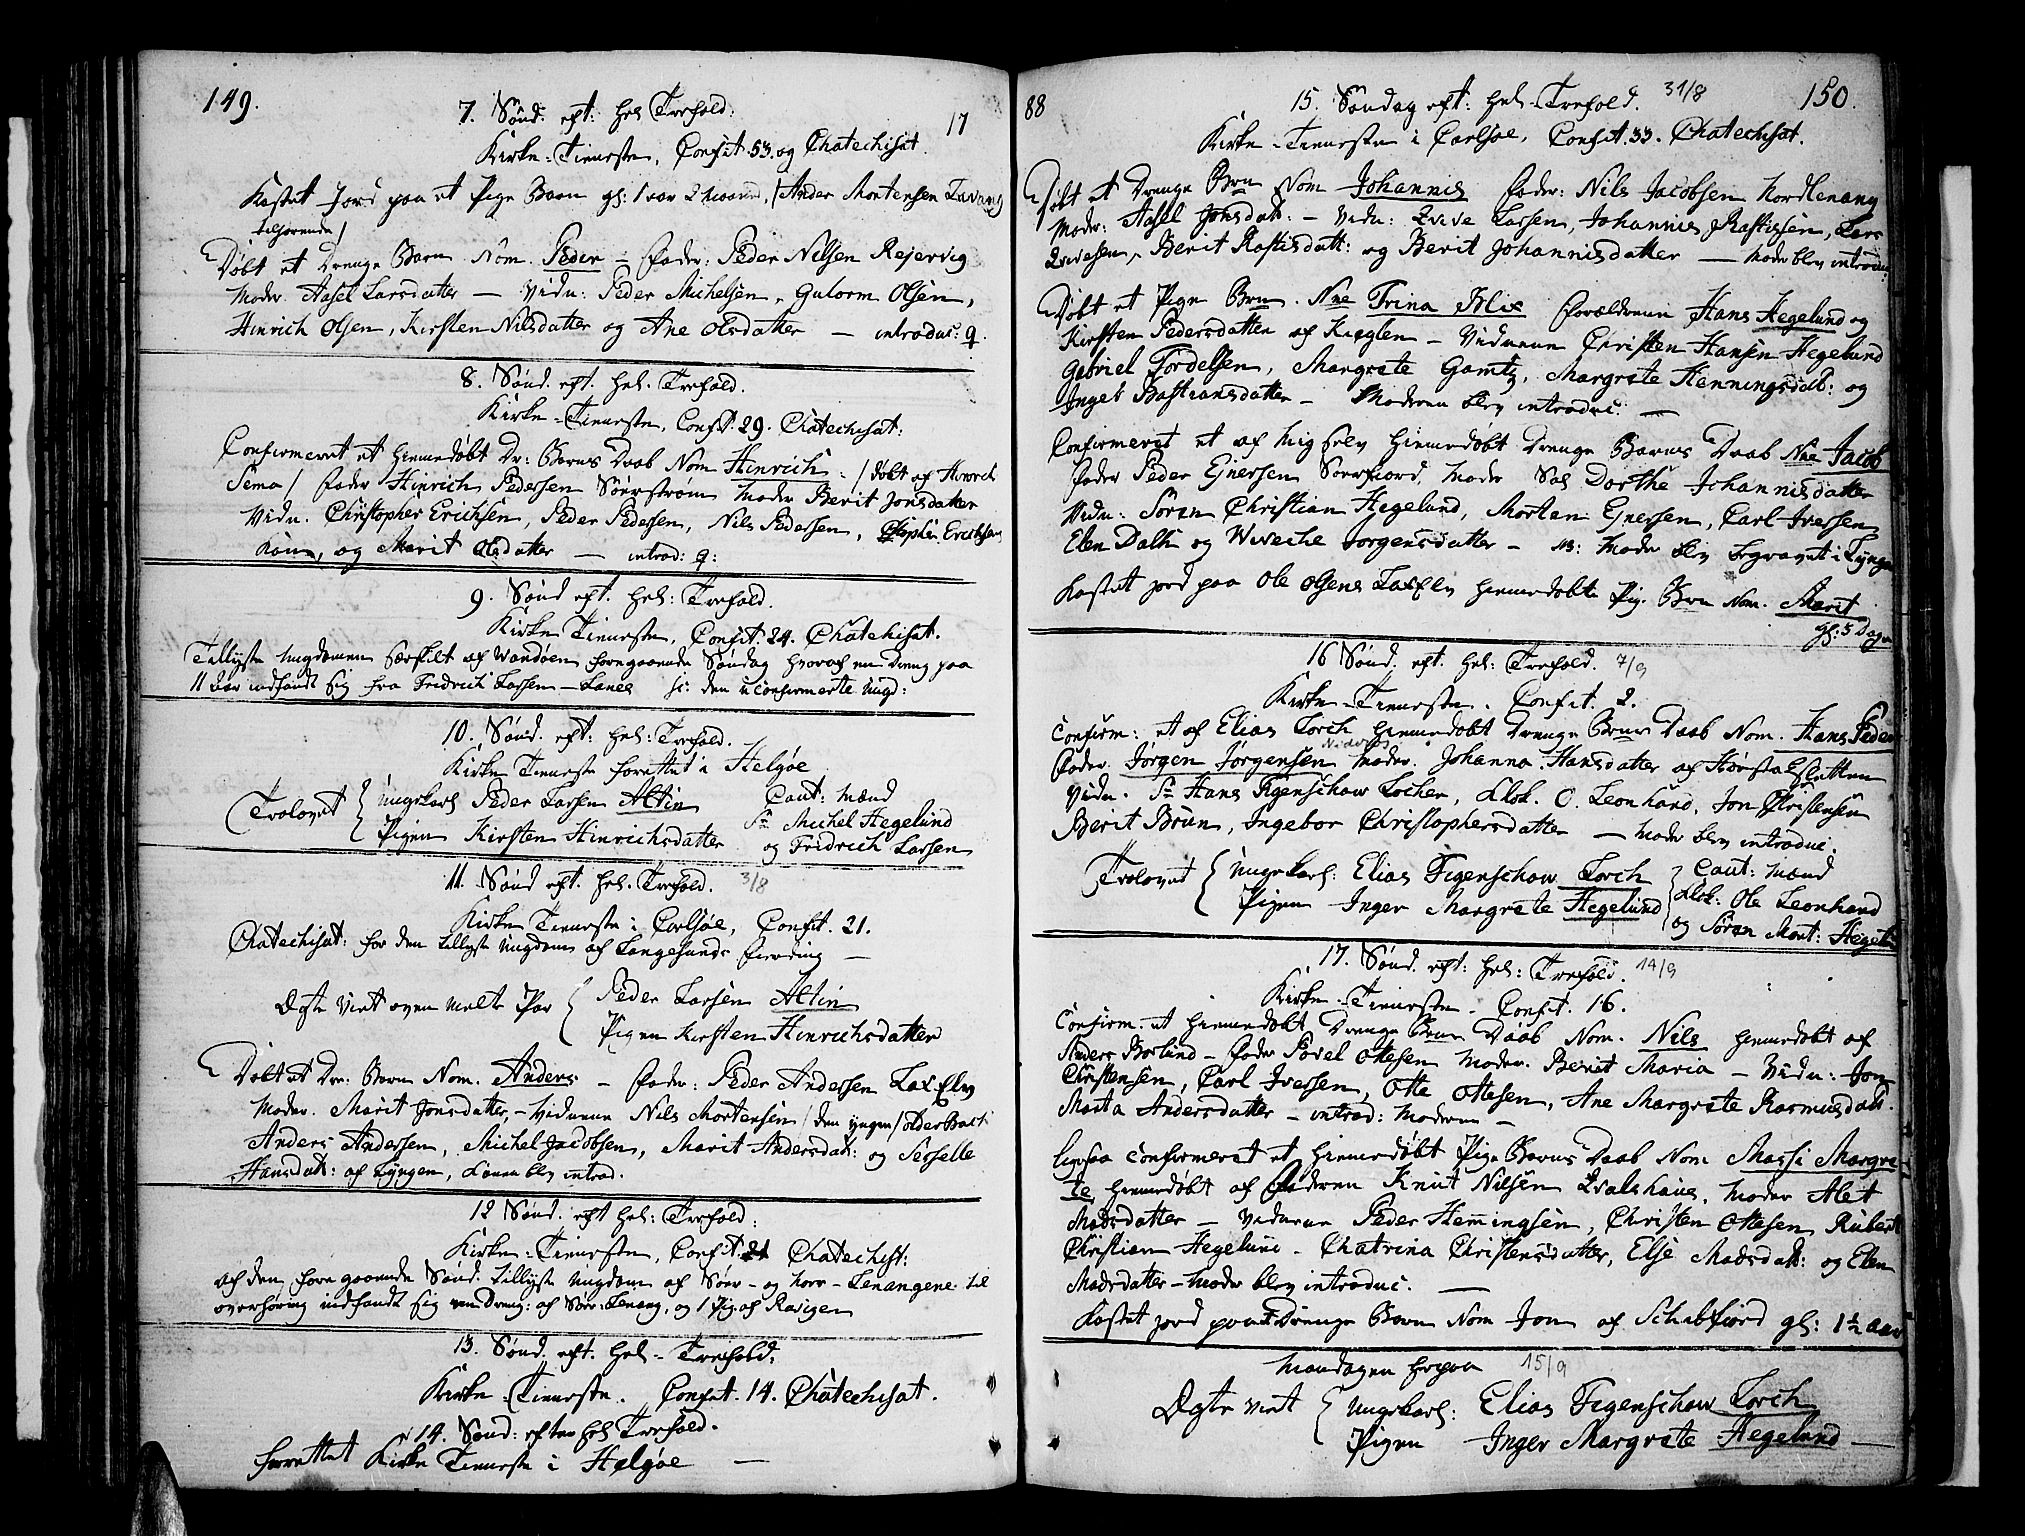 149.
7. Sønd. eft: hel Trefold:
17
Kirke-Tieneste, Confit. 53. og Chatechisat.
Kastet Jord paa et Pige Barn gl: 1 aar 2 maan, / Ander Mortensen
tilhørende /
Døbt et Drenge Barn Nom. Peder - Fader: Peder Nilsen Rejervig
Moder Aasel Larsdatter — Vidn: Peder Michelsen, Gulorm Olsen,
Hinrich Olsen, Kirsten Nilsdatter og Ane Olsdatter — introduc: q.
8. Sønd. eft. hel. Trefold.
Kirke-Tieneste, Confit. 29. Chatechisat:
Confirmeret et hiemedøbt Dr: Barns Daab Nom Hinrich: / døbt af Henrich
Sema / Fader Hinrich Pedersen Sørstrøm Moder Berit Jonsdatter
Vidn. Christopher Erichsen, Peder Pedersen, Nils Pedersen, Chopher Erichsens
Kone, og Marit Olsdatter — introd: q:
9. Sønd eft. hel: Trefold.
Kirke Tieneste, Confit. 24. Chatechisat.
Tillyste Ungdomen særskilt af Wandøen foregaaende Søndag hvoraf en Dreng paa
11 aar indfandt sig fra Fridrich Larsen — Lanes sc: den uconfirmerte Ungd:
10. Sønd. eft: hel: Trefold.
Kirke Tieneste forrettet i Helgøe
Trolovet { Ungekarl Peder Larsen Altin
Pigen Kirsten Hinrichsdatter
Caut: Mænd
Sr Michel Hegelund
og Fridrich Larsen
11. Sønd eft. hel. Trefold. 3/8
Kirke Tieneste i Carlsøe, Confit. 21.
Chatechisat: for den tillyste Ungdom af Langesunds fierding —
Ægte Viet oven melte Par { Peder Larsen Altin
Pigen Kirsten Hinrichsdatter
Døbt et Dr: Barn Nom. Anders — Fader: Peder Andersen Lax Elv
Moder. Marit Jonsdatter, - Vidnerne Nils Mortensen / den yngere / olderbak
Anders Andersen, Michel Jacobsen, Marit Andersdatt: og Sesselle
Hansdatt: af Lyngen, Konen blev introd.
12 Sønd. eft hel: Trefold:
Kirke-Tieneste, Confit. 21 Chatechist:
af den foregaaende Sønd. tillyste Ungdom af Sør- og Nor- Lenangene til
overhøring indfandt sig een Dreng: af Sør: Lenang, og 1 Pig. af Ravigen
13. Sønd. eft. hel. Trefold.
Kirke-Tieneste. Confit. 14. Chatechisat.
14. Sønd: efter hel Trefold.
forrettet Kirke Tieneste i Helgøe —
88
15. Søndag eft: hel. Trefold. 31/8
150.
Kirke-Tieneste i Carlsøe, Confit. 33. Chatechisat.
Døbt et Drenge Brn Nom Johannis Fader: Nils Jacobsen Nordlenang
Moder: Aasel Jonsdatt: - Vidn: Zvive Larsen, Johannis Rastissen, Lars
Zvivesen, Berit Rastisdatt: og Berit Johannisdatter — Moder blev introduc
Døbt et Pige Brn. Nne Trina Blix Forældrene Hans Hegelund og
Kirsten Pedersdatter af Kieglen — Vidnerne Christen Hansen Hegelund
Gabriel Tordelsen, Margrete Gamtz, Margrete Henningsdatt: og
Ingeb Bastiansdatter — Moderen blev introduc. —
Confirmeret et af mig selv hiemedøbt Drenge Barns Daab Nne Jacob
Fader Peder Ejnersen Sørfiord, Moder Sal Dorthe Johannisdatter
Vidn: Søren Christian Hegelund, Morten Ejnersen, Carl Iversen
Elen Dalh og Wiveche Jørgensdatter - NB: Moder blev begravet i Lyngen
Kastet jord paa Ole Olsens Laxelv hiemedøbte Pig. Brn Nom. Marit
gl: 5 Dage
16 Sønd. eft. hel: Trefold. 7/9
Kirke-Tieneste. Confit. 2.
Confirm: et af Elias Lorch hiemedøbt Drenge Brns Daab Nom. Hans Peder
Fader. Jørgen Jørgensen Moder. Johanna Hansdatter af Horstad Slætten
Vidn. Sr Hans Figenschow Locher, Klok. O. Leonhard, Jon Christensen
Berit Brun, Ingebor Christophersdatter — Moder blev introduc.
Trolovet { Ungekarl: Elias Figenschow Lorch
Pigen Inger Margrete Hegelund } Caut: Mænd
Klok: Ole Leonhard
og Søren Mort: Hegel
17. Sønd. eft: hel: Trefold. 14/9
Kirke-Tieneste. Confit. 16.
Confirm. et hiemedøbt Drenge Brns Daab Nom. Nils hiemedøbt af
Anders Borlind — Fader Povel Ottesen Moder. Berit Maria — Vidn: Jon
Christensen, Carl Iversen, Otte Ottesen, Ane Margrete Rasmusdatt.
Marta Andersdatter — introd: Moderen —
ligesaa confirmeret et hiemedøbt Pige Barns Daab Nom Massi Margre-
te hiemedøbt af Faderen Knut Nilsen Zvalshaus, Moder Alet
Madsdatter — Vidnerne Peder Hemingsen, Christen Ottesen Rubert
Christian Hegelund - Chatrina Christensdatter, Else Madsdatt: og Elen
Madsdatter — Moder blev introduc. —
Kastet jord paa et Drenge Barn Nom Jon af Schalsfiord gl: 1½ aar
Mandagen herpaa 15/9
Ægte viet { Ungekarl: Elias Figenschow Lorch
Pigen Inger Margrete Hegelund —